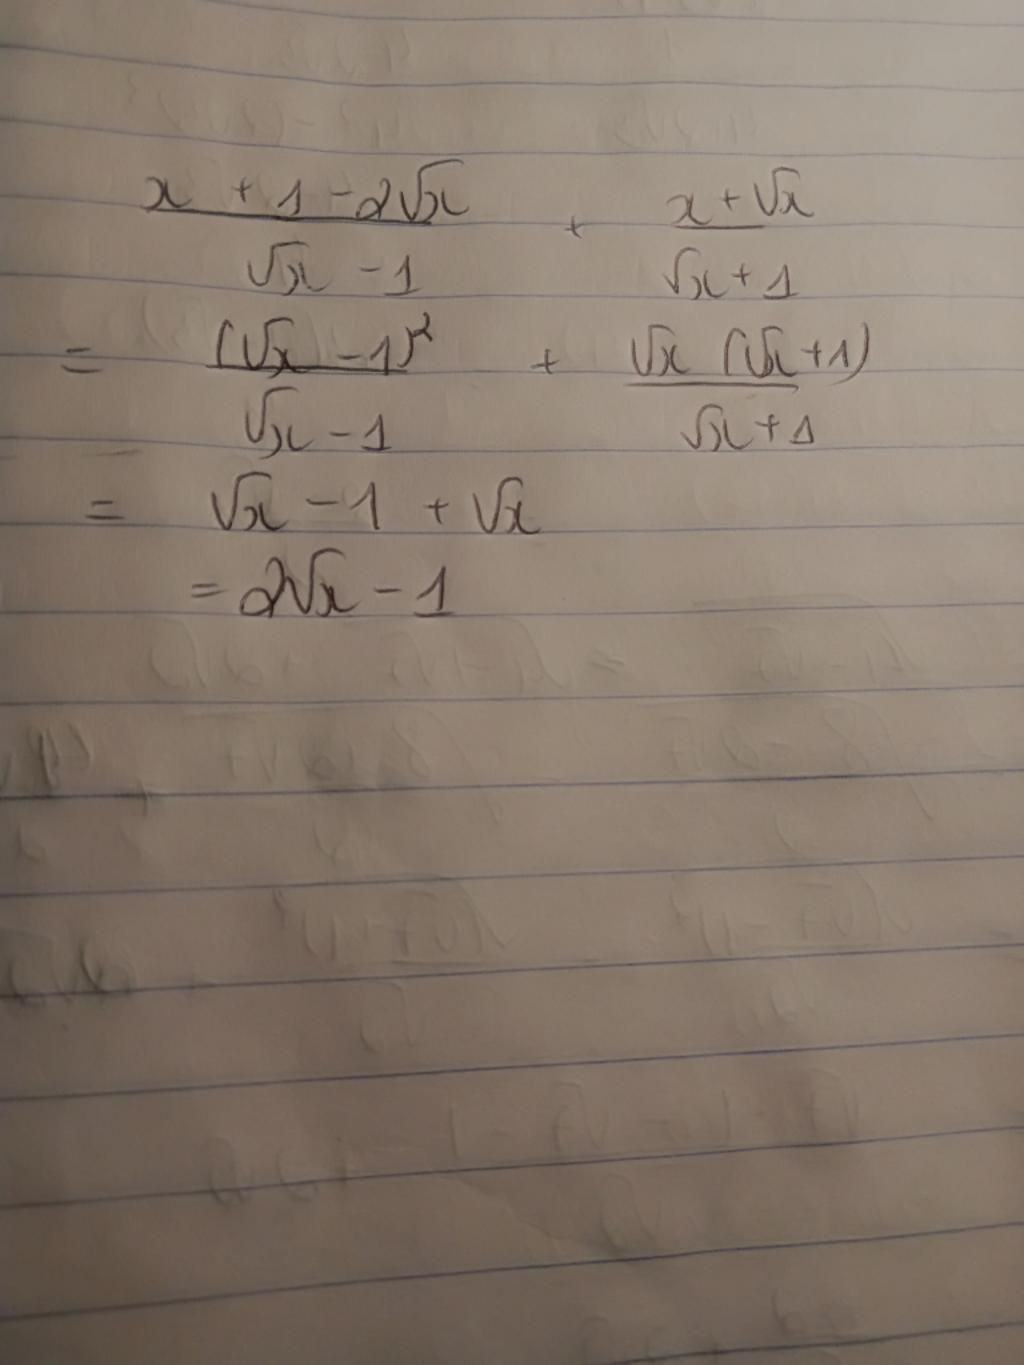 x + 1 - 2√x / √x - 1 + x + √x / √x + 1
= (√x - 1)² / √x - 1 + √x (√x + 1) / √x + 1
= √x - 1 + √x
= 2√x - 1